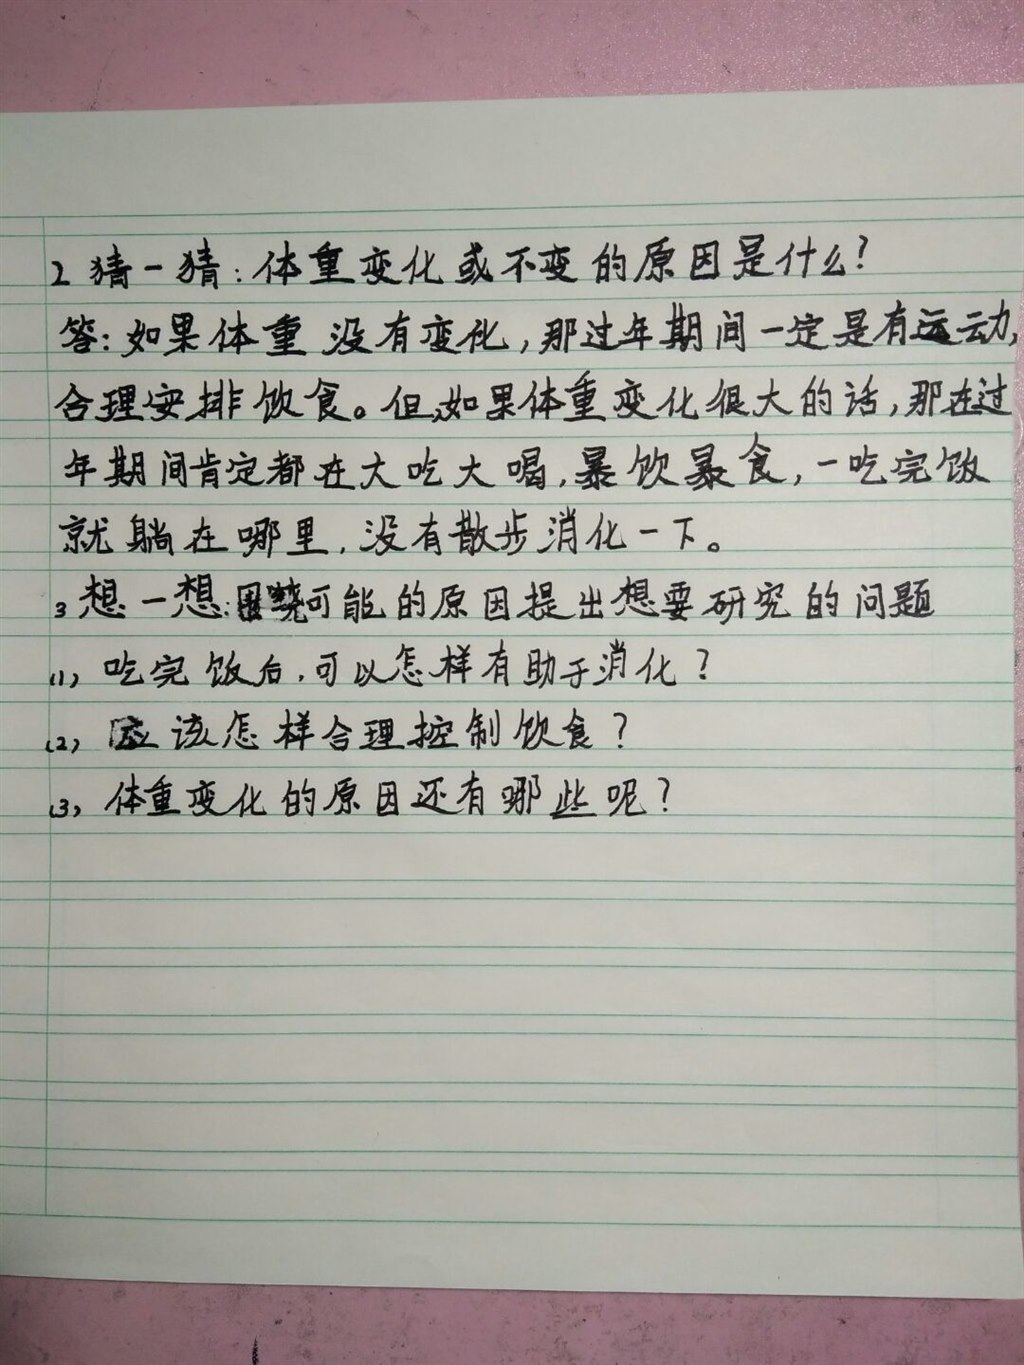 2 猜一猜：体重变化或不变的原因是什么？
答：如果体重没有变化，那过年期间一定是有运动，
合理安排饮食。但，如果体重变化很大的话，那在过
年期间肯定都在大吃大喝，暴饮暴食，一吃完饭
就躺在哪里，没有散步消化一下。
3 想一想：围绕可能的原因提出想要研究的问题
(1) 吃完饭后，可以怎样有助于消化？
(2) 应该怎样合理控制饮食？
(3) 体重变化的原因还有哪些呢？